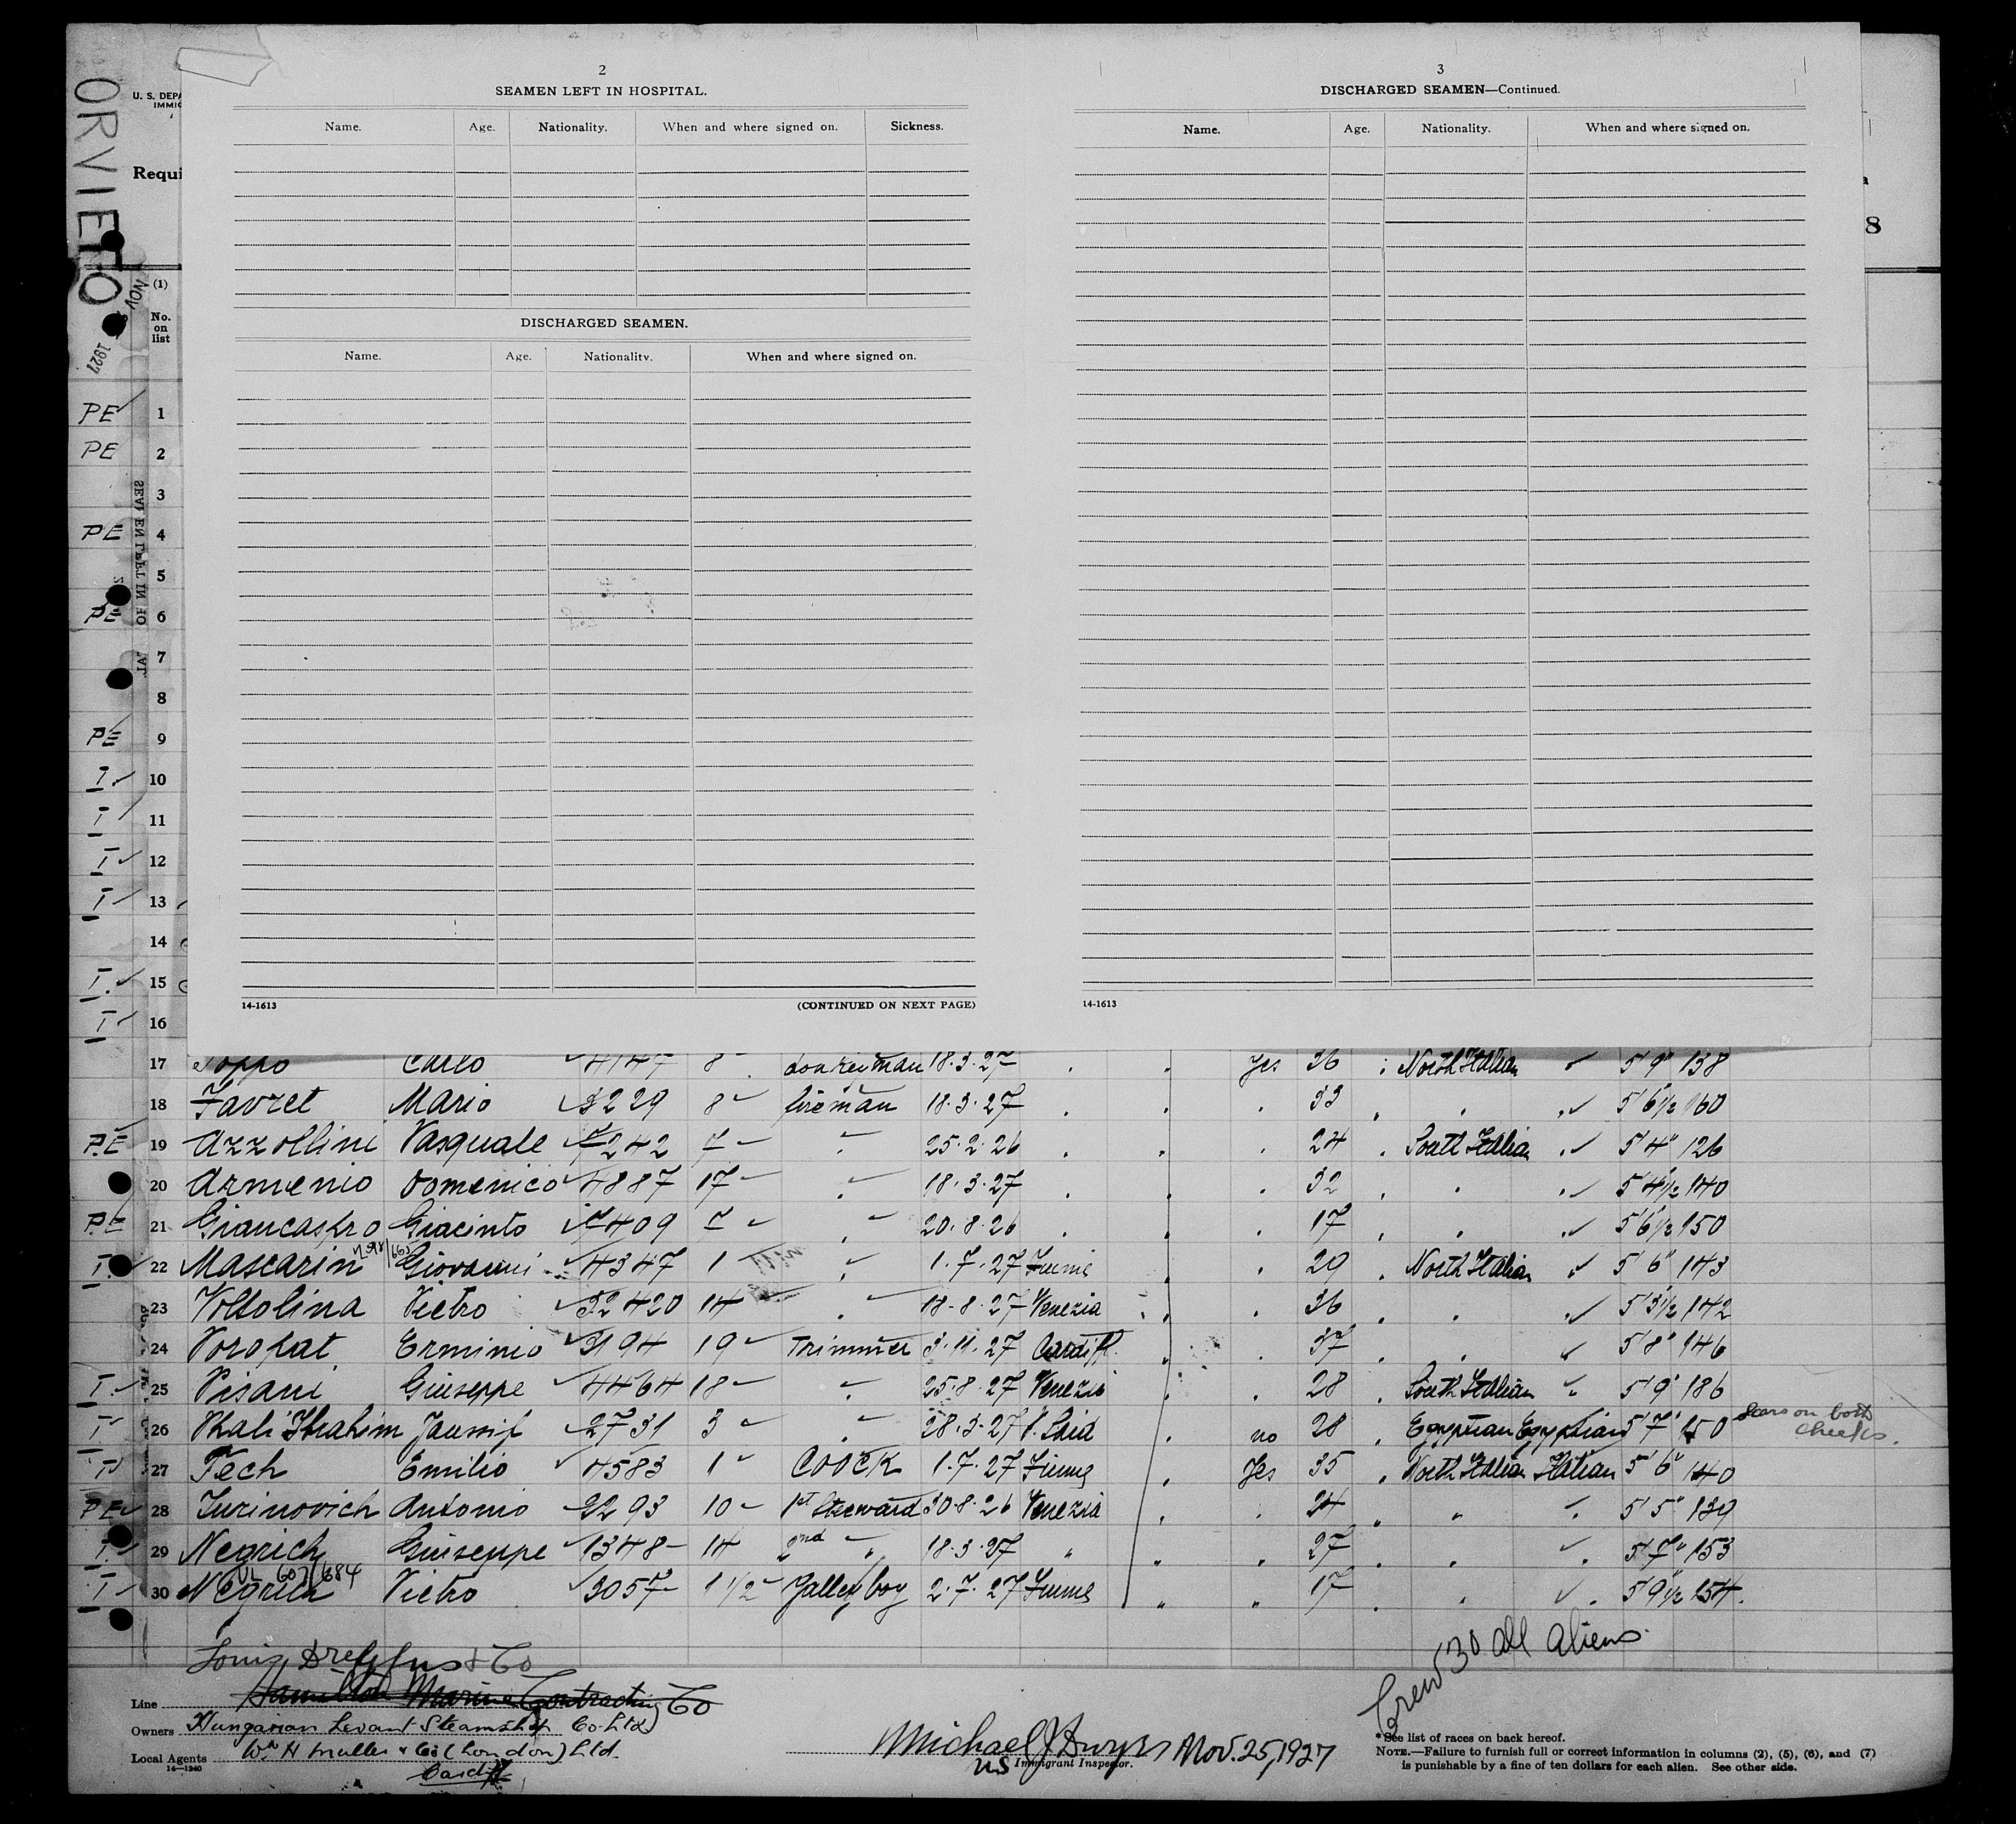 ORVIETO
NOV 1927
U. S. DEPA
IMMIG
Requi
8
(1)
No.
on
list
2
SEAMEN LEFT IN HOSPITAL.
Name. Age. Nationality. When and where signed on. Sickness.
DISCHARGED SEAMEN.
Name. Age. Nationality. When and where signed on.
14-1613 (CONTINUED ON NEXT PAGE)
3
DISCHARGED SEAMEN—Continued.
Name. Age. Nationality. When and where signed on.
14-1613
PE 1
PE 2
3
PE 4
5
PE 6
7
8
PE 9
I 10
I 11
I 12
I 13
14
I 15
I 16
17 Carlo 4147 8 donkeyman 18.3.27 Yes 36 North Italian 5'9" 138
18 Favret Mario 3229 8 fireman 18.3.27 33 5'6½ 160
PE 19 Azzollini Pasquale 7242 7 " 25.2.26 24 South Italian 5'4" 126
20 Armenio Domenico 4887 17 " 18.3.27 32 5'4½ 140
PE 21 Giancaspro Giacinto 7409 7 " 20.8.26 17 5'6½ 150
I 22 Mascarin Giovanni 4347 1 " 1.7.27 Fiume 29 North Italian 5'6" 143
23 Voltolina Pietro 32420 14 " 18-8-27 Venezia 36 " 5'3½ 142
24 Poropat Erminio 3194 19 Trimmer 3.11.27 Cardiff 37 " 5'8" 146
I 25 Pisani Giuseppe 4464 18 " 25.8.27 Venezia 28 South Italian " 5'9" 186
I 26 Ibrahim 2731 3 " 28.3.27 P. Said no 28 Egyptian Egyptian 5'7" 150 Scars on both cheeks.
I 27 Pech Emilio 4583 1 Coock 1.7.27 Fiume Yes 35 North Italian Italian 5'6" 140
PE 28 Turinovich Antonio 3293 10 1st Steeward 30.8.26 Venezia 24 " 5'5" 139
I 29 Negrich Giuseppe 1348 14 2nd " 18.3.27 " 27 " 5'7" 153
I 30 Negrich Pietro 3057 1 1/2 Galley boy 2.7.27 Fiume " 17 5'9½ 154
Crew 30 all aliens.
Louis Dreyfus & Co
Line Hamilton Marine Contracting Co
Owners Hungarian Levant Steamship Co. Ltd
Local Agents Wm H Muller & Co (London) Ltd.
14—1240
Cardiff
Michael J Dwyer Nov. 25, 1927
US Immigrant Inspector.
* See list of races on back hereof.
NOTE.—Failure to furnish full or correct information in columns (2), (5), (6), and (7)
is punishable by a fine of ten dollars for each alien. See other side.